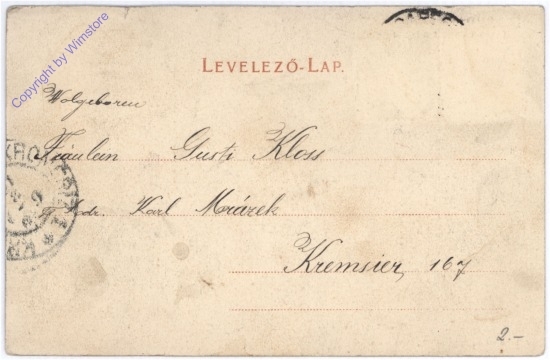 Copyright by Wimstore
LEVELEZŐ-LAP.
Wolgeboren
Fräulein Gusti Kloss
Karl Mrázek
Kremsier, 167
2.-